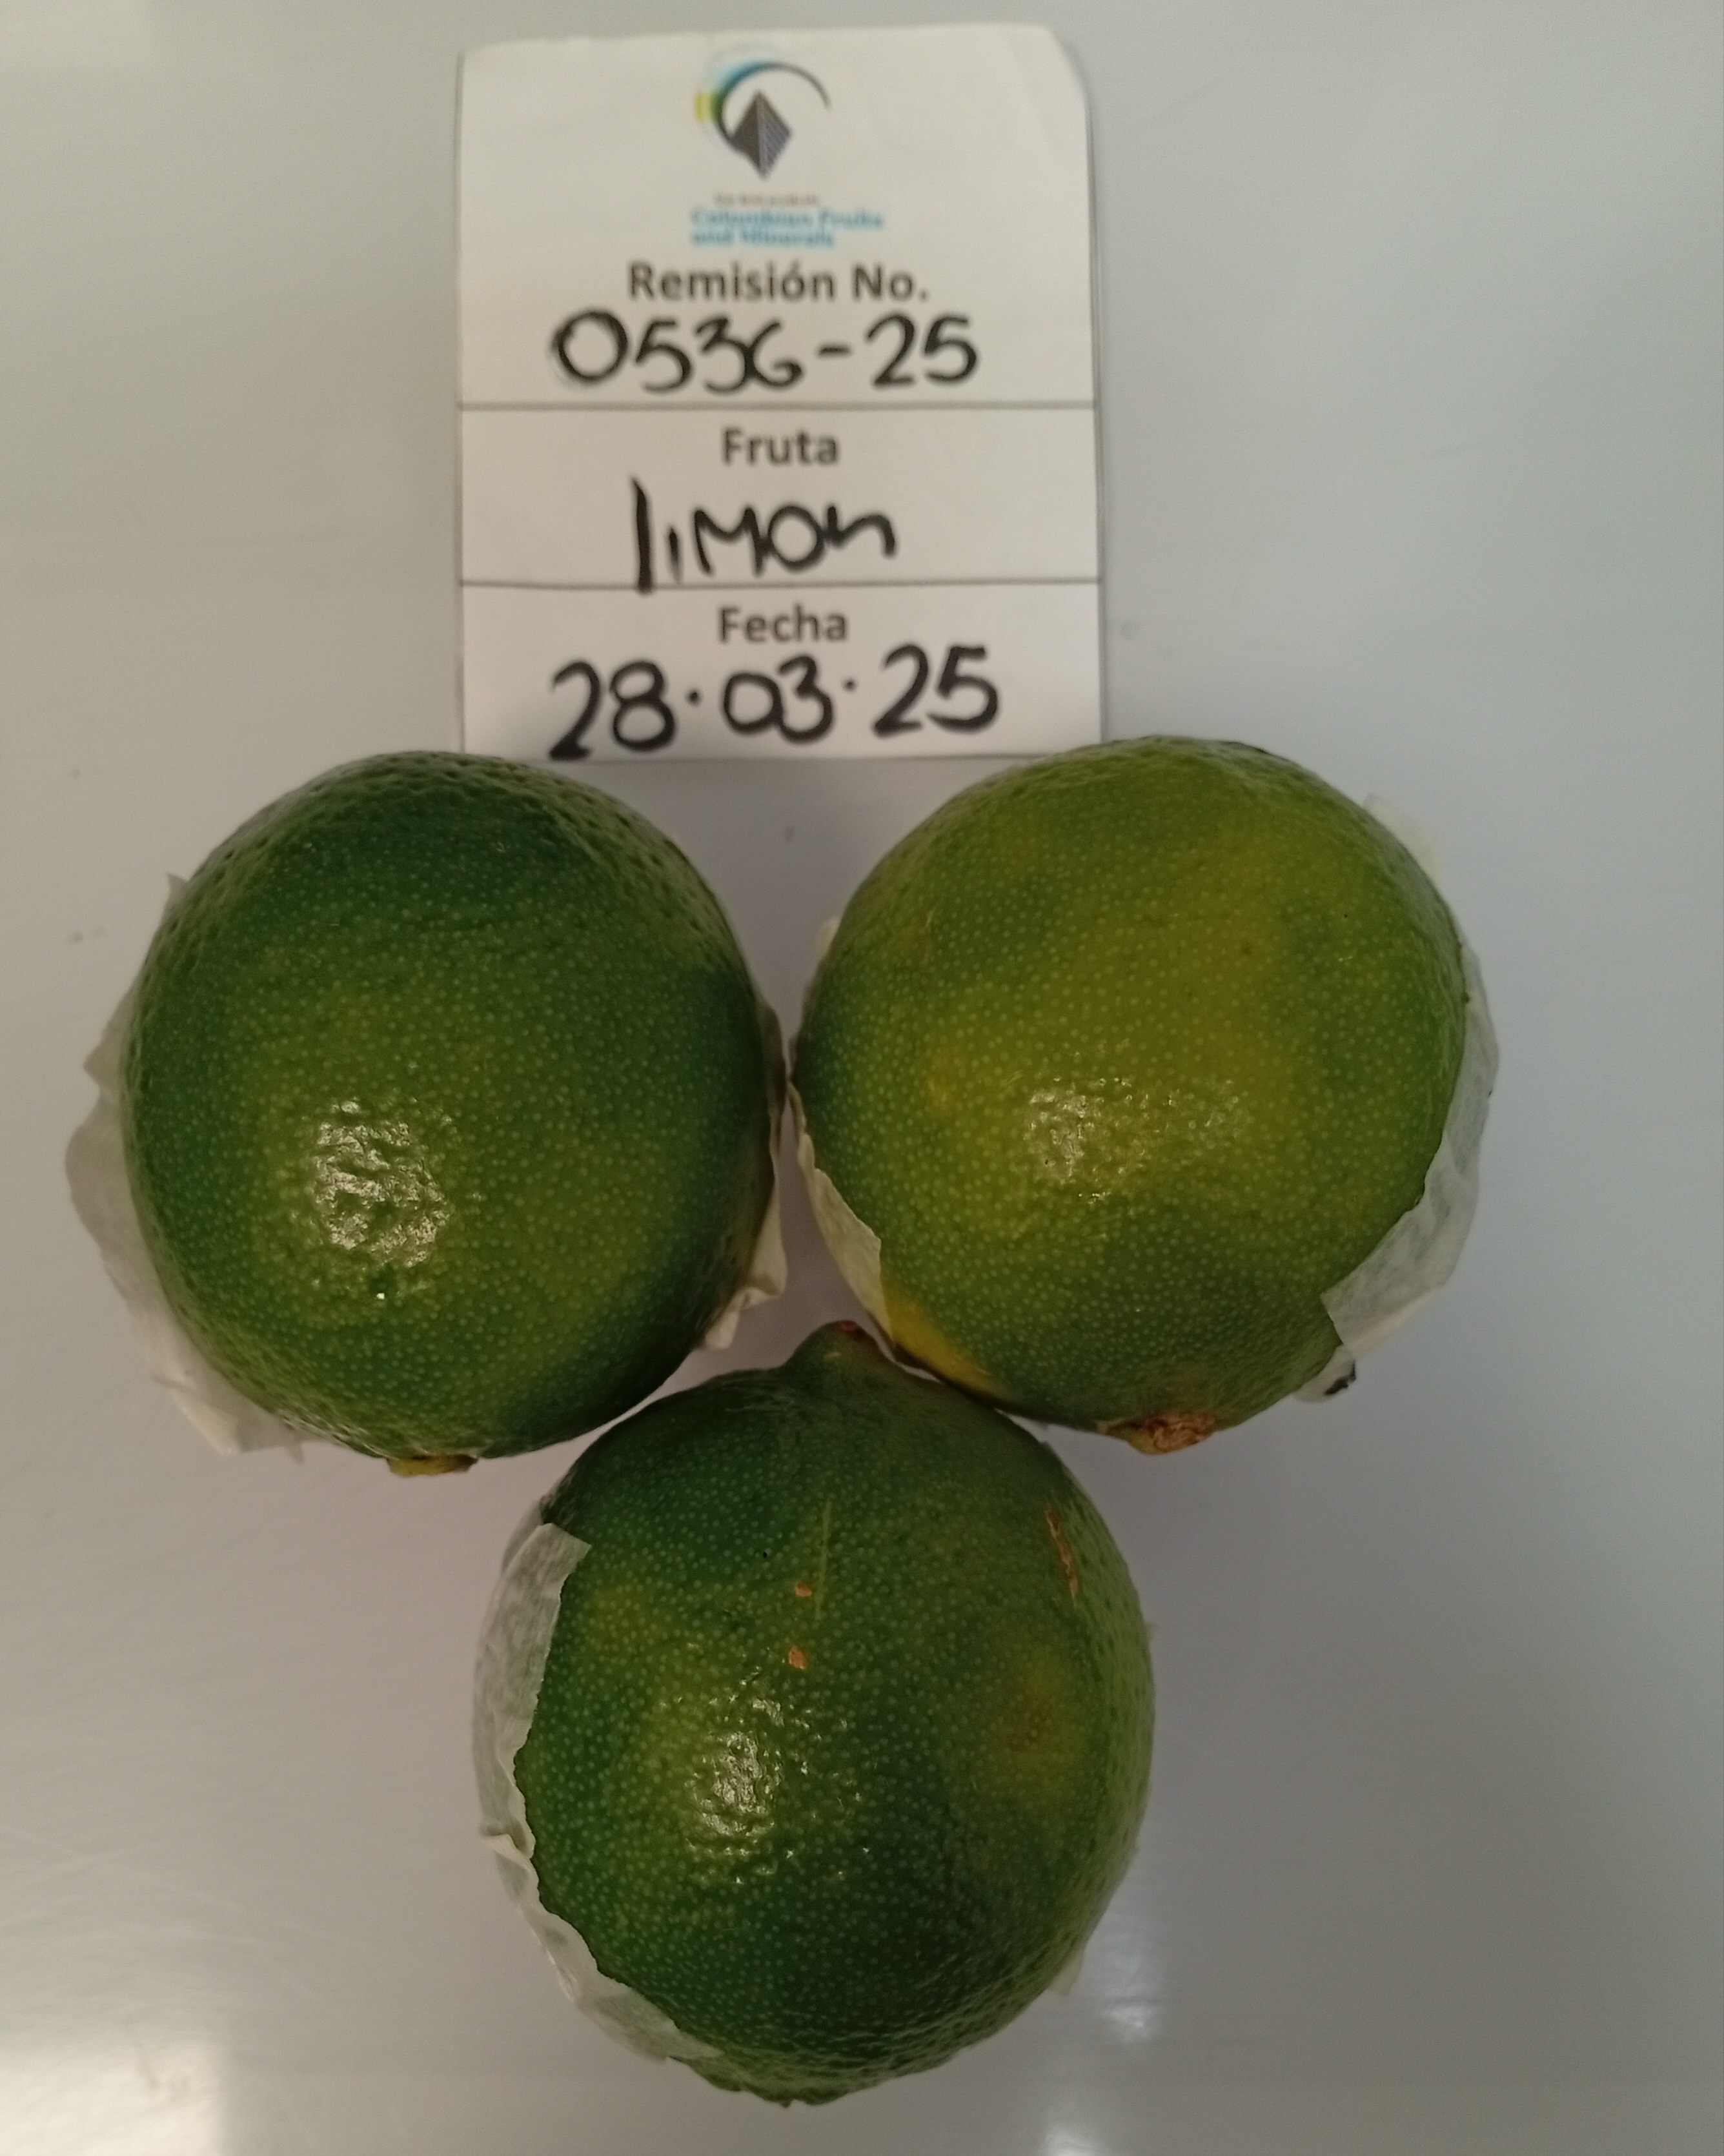 Colombian Fruits
and Minerals
Remisión No.
0536-25
Fruta
limon
Fecha
28.03.25